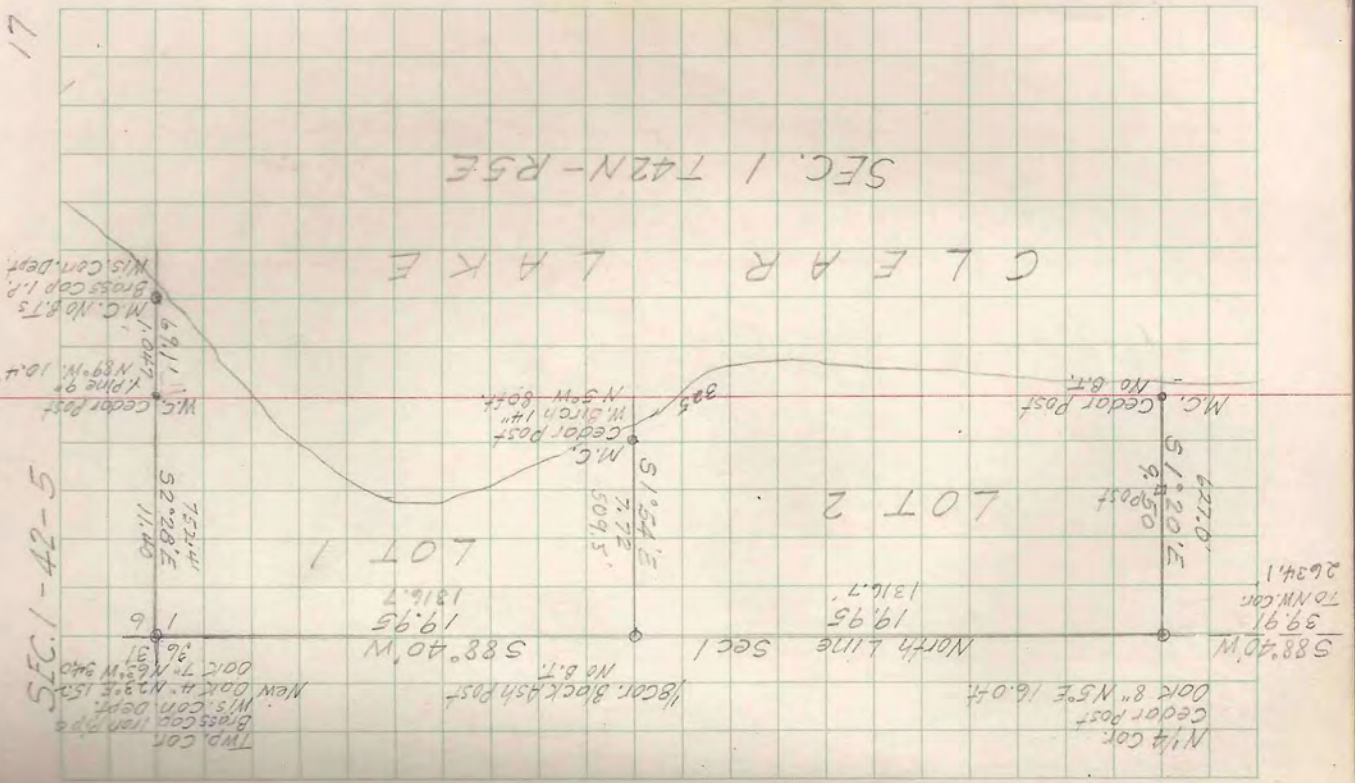 17
SEC. 1 - 42 - 5
N 1/4 Cor.
Cedar Post
Oak 8" N5°E 16.0 ft.
1/8 Cor. Black Ash Post
No B.T.
Twp. Cor.
Brass Cap Iron Pipe
Wis. Con. Dept.
New Oak 4" N23°E 15.2
Oak 7" N63°W 34.0
36 31
1 6
S88°40'W
39.91
TO N.W. Cor.
2634.1
North Line Sec 1
19.95
1316.7'
S88°40'W
19.95
1316.7
627.0'
S1°20'E
9.50
Post
LOT 2
S1°54'E
7.72
509.5'
LOT 1
752.4'
S2°28'E
11.40
M.C.
Cedar Post
No B.T.
M.C.
Cedar Post
W. Birch 14"
N5°W 8.0 ft.
325
W.C. Cedar Post
Y. Pine 9"
N89°W. 10.4'
69.1'
1.047
M.C. No B.Ts
Brass Cap I.P.
Wis. Con. Dept.
CLEAR LAKE
SEC. 1 T42N-R5E